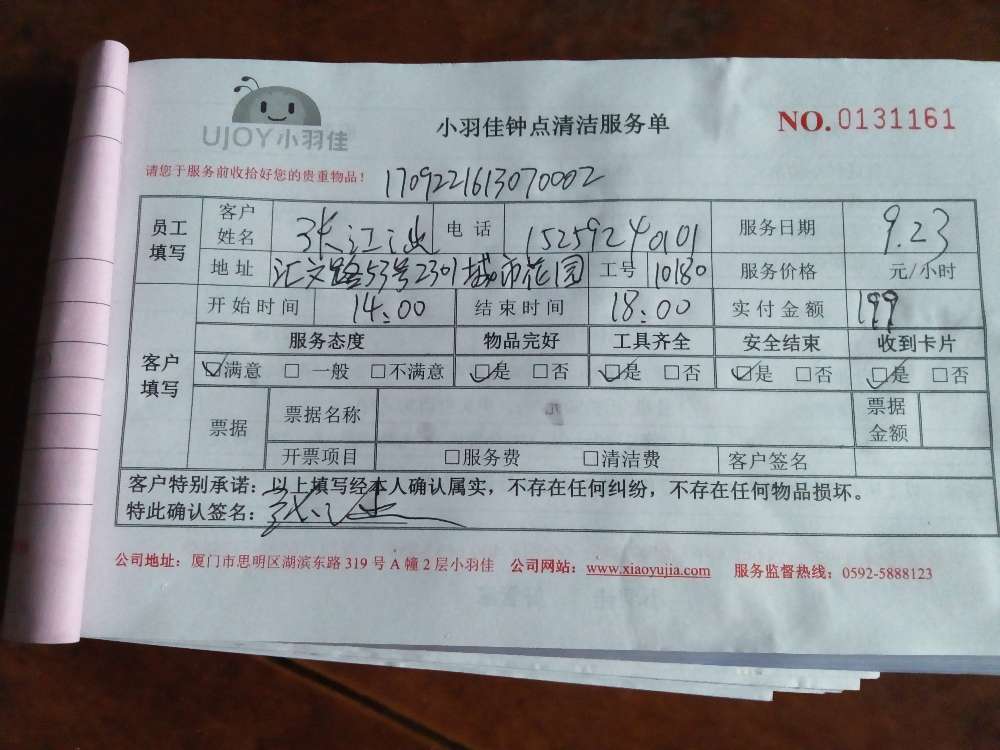 UJOY小羽佳
小羽佳钟点清洁服务单
NO.0131161
请您于服务前收拾好您的贵重物品！
1709221613070002
员工填写
客户姓名 张江 电话 15259240101 服务日期 9.23
地址 汇文路53号2301城市花园 工号 10180 服务价格 元/小时
客户填写
开始时间 14:00 结束时间 18:00 实付金额 199
服务态度 物品完好 工具齐全 安全结束 收到卡片
☑满意 □一般 □不满意 ☑是 □否 ☑是 □否 ☑是 □否 ☑是 □否
票据 票据名称 元 票据金额
开票项目 □服务费 □清洁费 客户签名
客户特别承诺：以上填写经本人确认属实，不存在任何纠纷，不存在任何物品损坏。
特此确认签名：张江
公司地址：厦门市思明区湖滨东路 319 号 A 幢 2 层小羽佳 公司网站：www.xiaoyujia.com 服务监督热线：0592-5888123